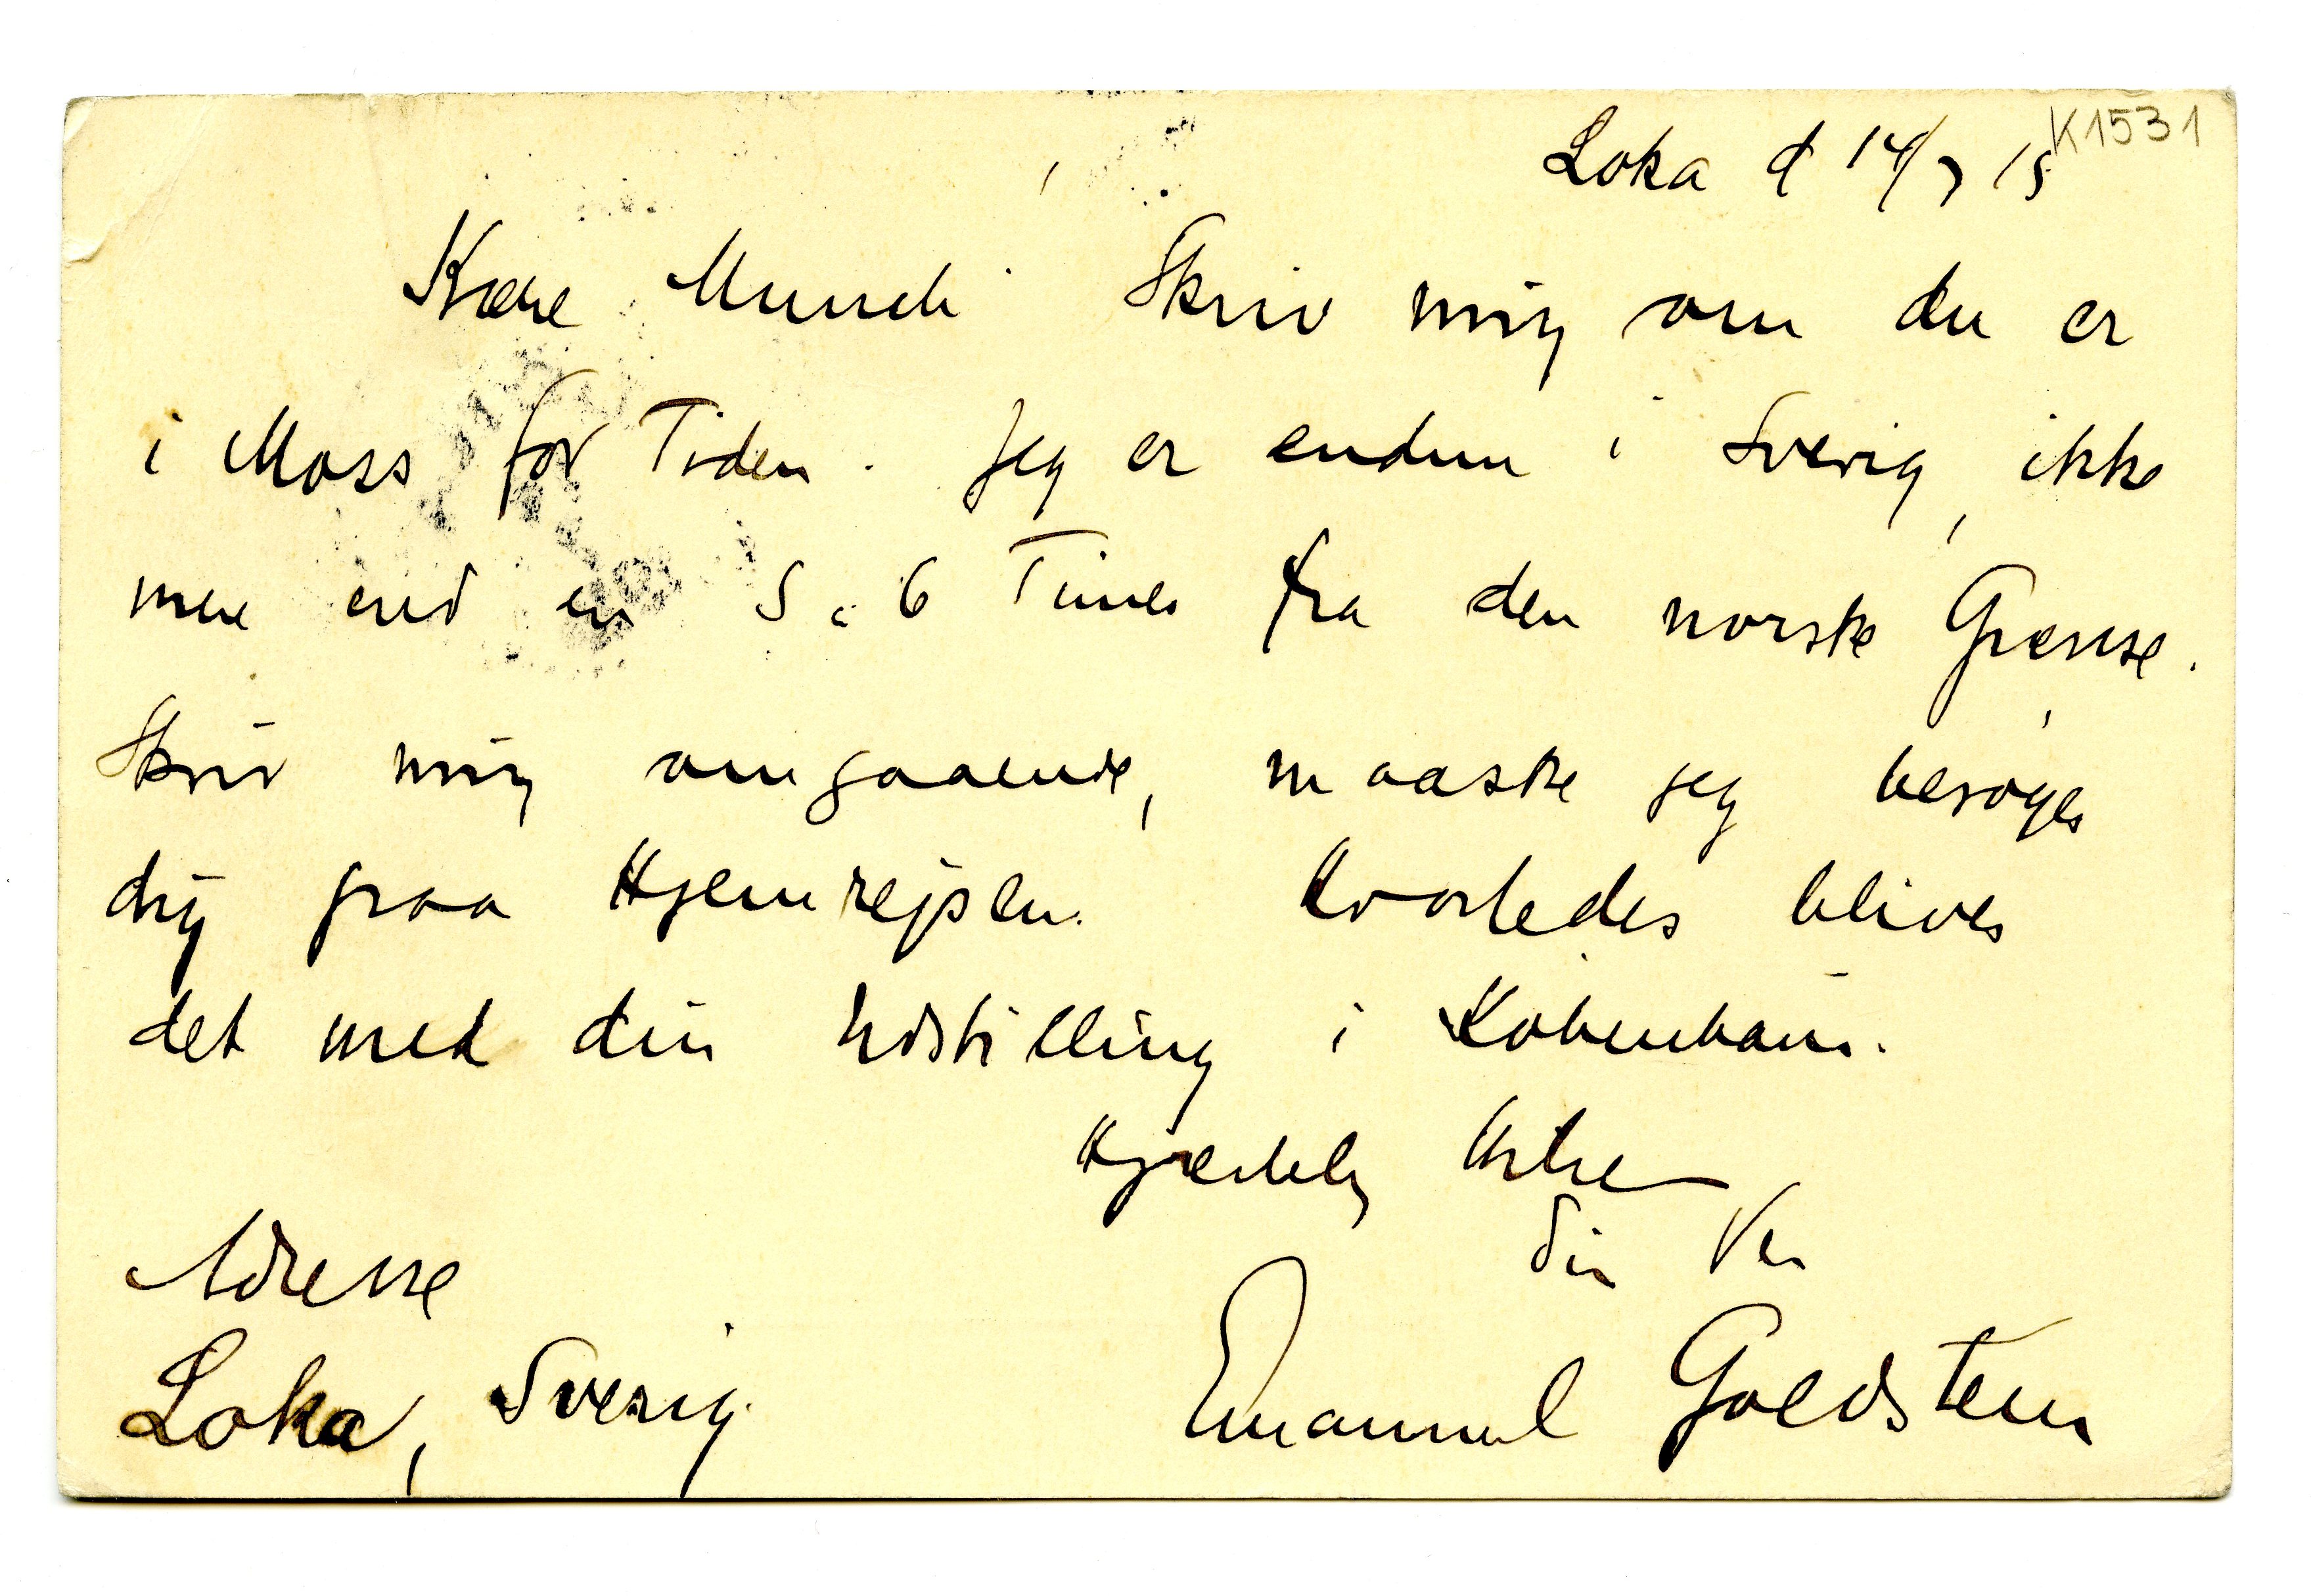 K1531
Loka d 14/7 15
Kære Munch! Skriv mig om du er
i Moss for Tiden. Jeg er endnu i Sverig, ikke
mere end en 5 à 6 Timer fra den norske Grænse.
Skriv mig omgaaende, maaske jeg besøger
dig paa Hjemrejsen. Hvorledes bliver
det med din Udstilling i København.
Hjærtelig Hilsen
din Ven
Emanuel Goldstein
Adresse
Loka, Sverig.